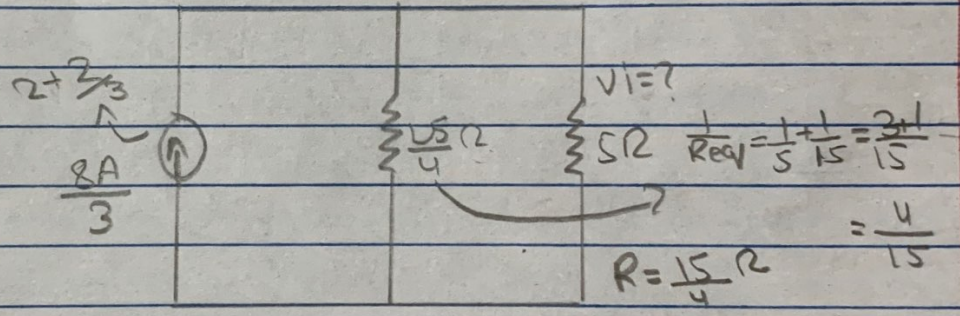 2+2/3
8A/3
15/4 Ω
V1=?
5Ω
1/Req = 1/5 + 1/15 = 3+1/15
= 4/15
R = 15/4 Ω